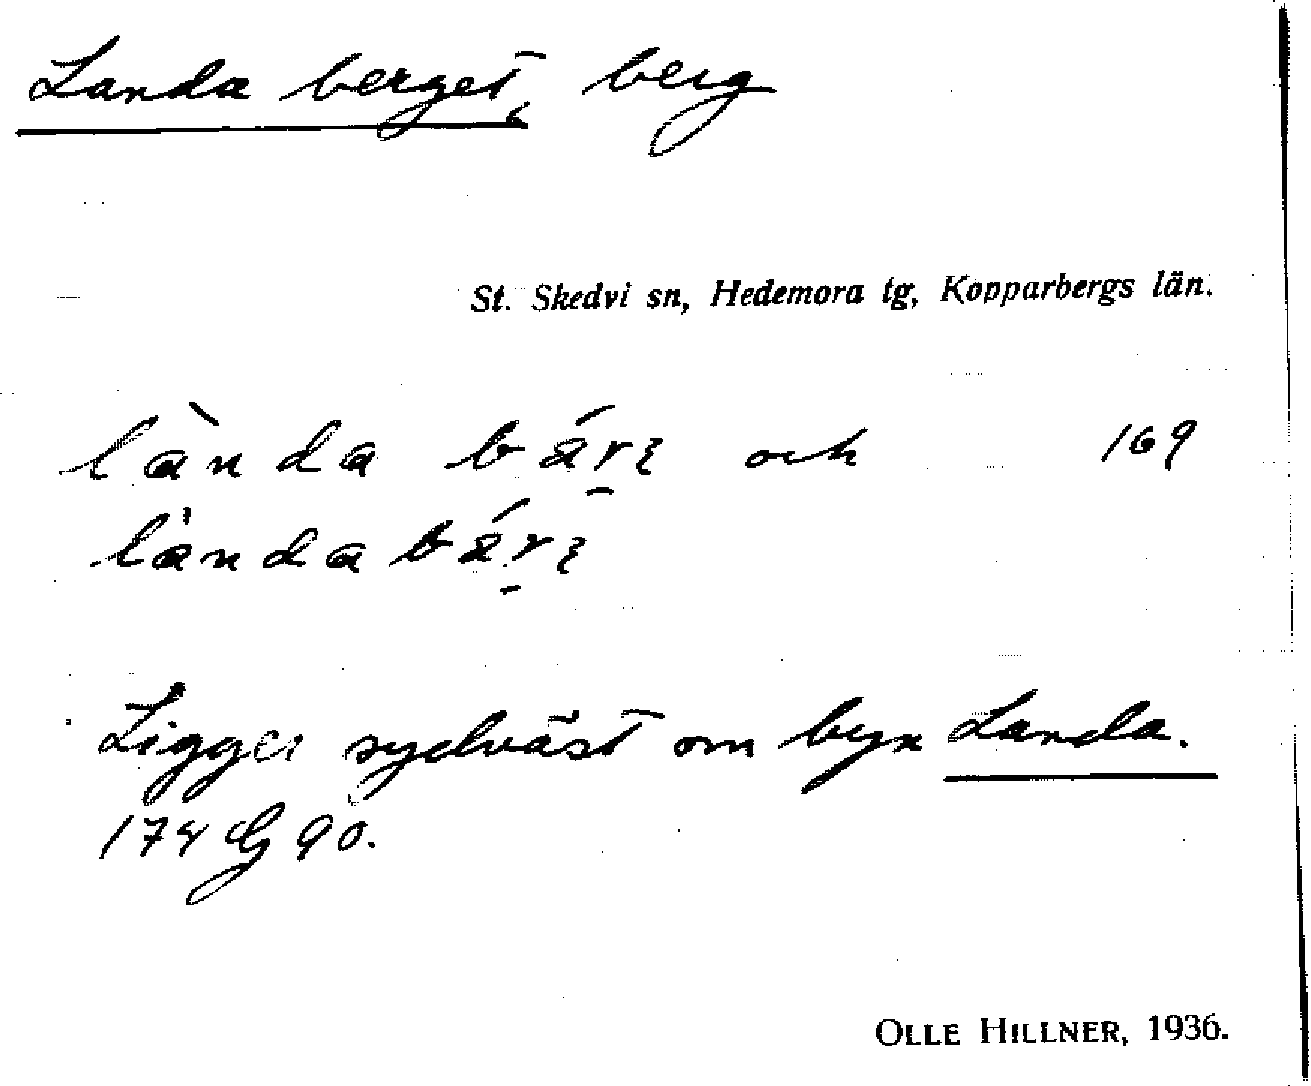 Landa berget, berg
St. Skedvi sn, Hedemora tg, Kopparbergs län.
lànda bárε och 169
làndabárε
Ligger sydväst om byn Landa.
174 G 90.
OLLE HILLNER, 1936.